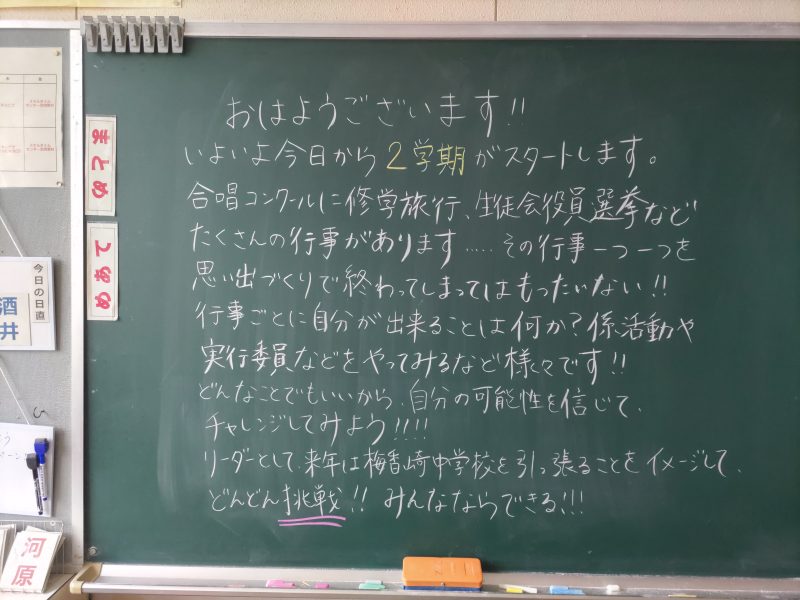 おはようございます!!
いよいよ今日から2学期がスタートします。
合唱コンクールに修学旅行、生徒会役員選挙など
たくさんの行事があります.....その行事一つ一つを
思い出づくりで終わってしまってはもったいない!!
行事ごとに自分が出来ることは何か?係活動や
実行委員などをやってみるなど様々です!!
どんなことでもいいから、自分の可能性を信じて、
チャレンジしてみよう!!!!
リーダーとして、来年は梅香崎中学校を引っ張ることをイメージして、
どんどん挑戦!!みんなならできる!!!
まとめ
めあて
今日の日直
酒井
河原